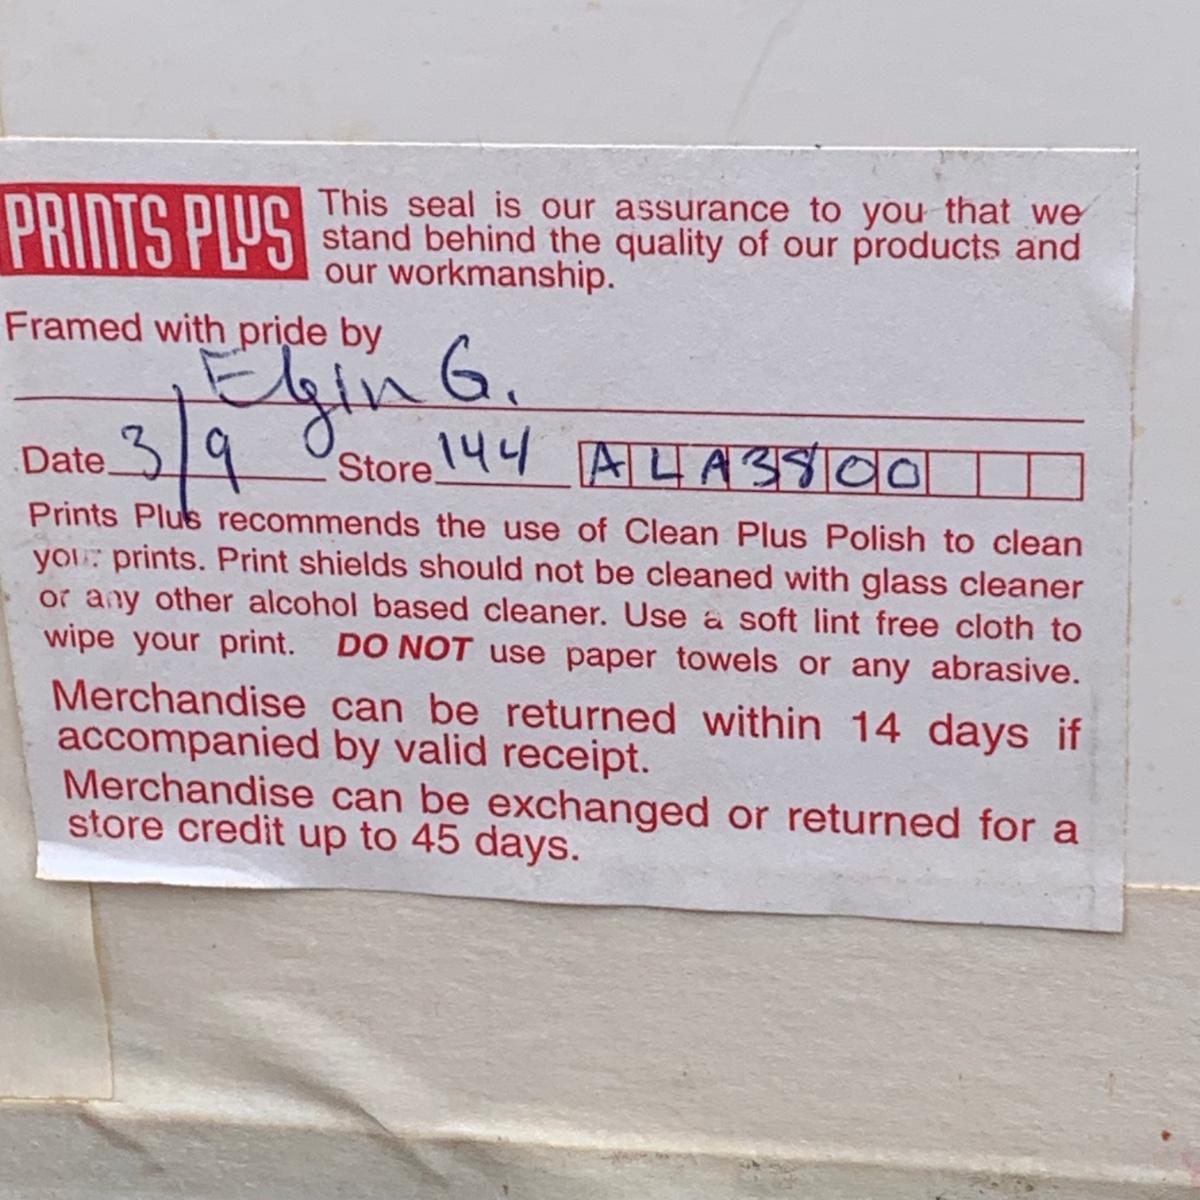 PRINTS PLUS
This seal is our assurance to you that we
stand behind the quality of our products and
our workmanship.
Framed with pride by
Elgin G.
Date 3/9 Store 144 ALA3800
Prints Plus recommends the use of Clean Plus Polish to clean
your prints. Print shields should not be cleaned with glass cleaner
or any other alcohol based cleaner. Use a soft lint free cloth to
wipe your print. DO NOT use paper towels or any abrasive.
Merchandise can be returned within 14 days if
accompanied by valid receipt.
Merchandise can be exchanged or returned for a
store credit up to 45 days.